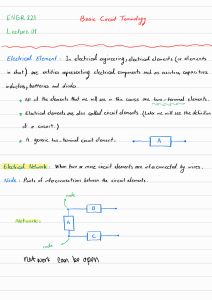 ENGR 221
Basic Circuit Terminology
Lecture 01
Electrical Element : In electrical engineering, electrical elements (or elements
in short) are entities representing electrical components such as resistors, capacitors,
inductors, batteries and diodes.
All of the elements that we will use in this course are two-terminal elements.
Electrical elements are also called circuit elements. (Later we will see the definition
of a circuit.)
A generic two-terminal circuit element:
A
Electrical Network : When two or more circuit elements are interconnected by wires.
Node : Points of interconnections between the circuit elements.
node
B
Network:
A
C
node
network can be open